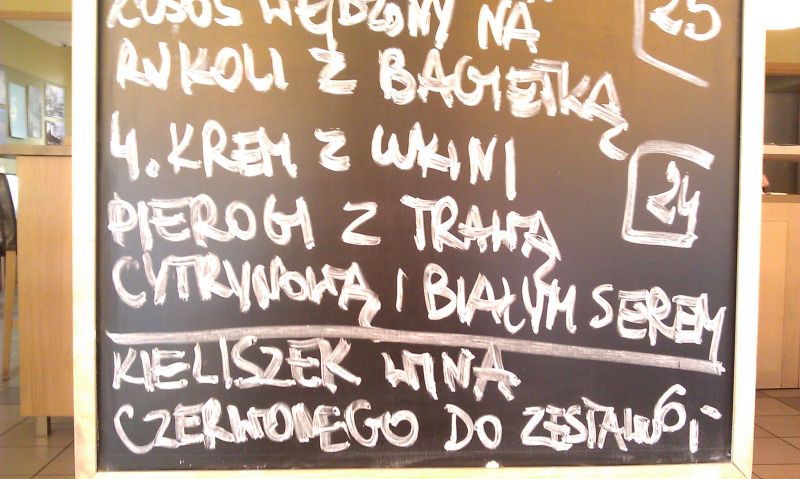 ŁOSOŚ WĘDZONY NA 25
RUKOLI Z BAGIETKĄ
4. KREM Z WKINI
PIEROGI Z TRAWĄ 24
CYTRYNOWĄ I BIAŁYM SEREM
KIELISZEK WINA
CZERWONEGO DO ZESTAWU 6,-